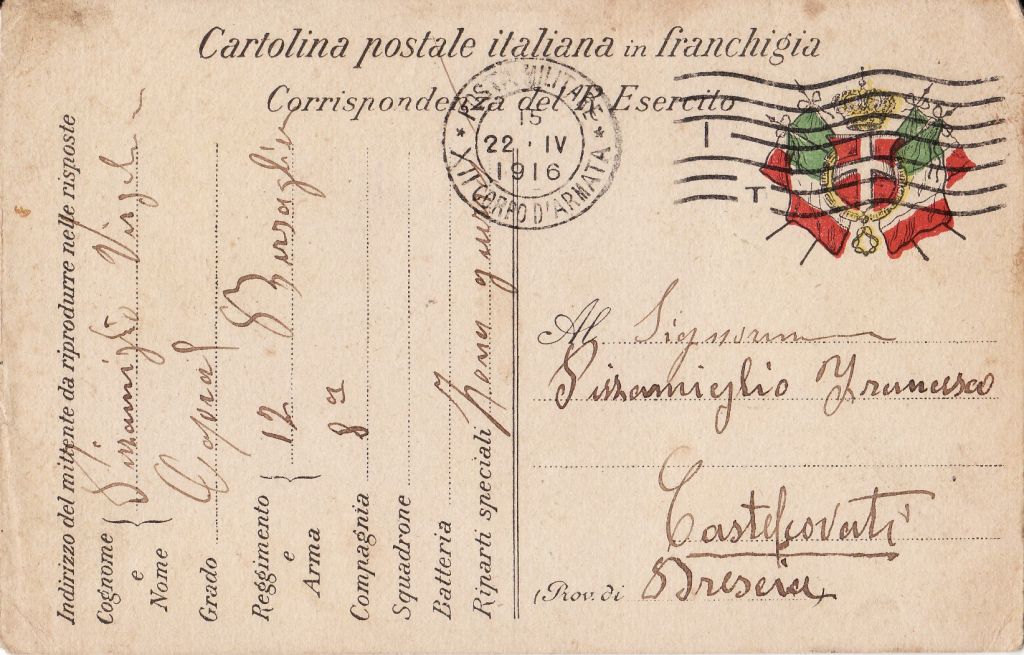 Cartolina postale italiana in franchigia
Corrispondenza del R. Esercito
POSTA MILITARE
15
22 · IV
1916
XII CORPO D'ARMATA
Indirizzo del mittente da riprodurre nelle risposte
Cognome e Nome Pizzamiglio
Grado Caporal
Reggimento e Arma 12 Bersaglieri
Compagnia 8a
Squadrone
Batteria
Riparti speciali Zona
Al Signor
Pizzamiglio Francesco
Castelcovati
(Prov. di Brescia)